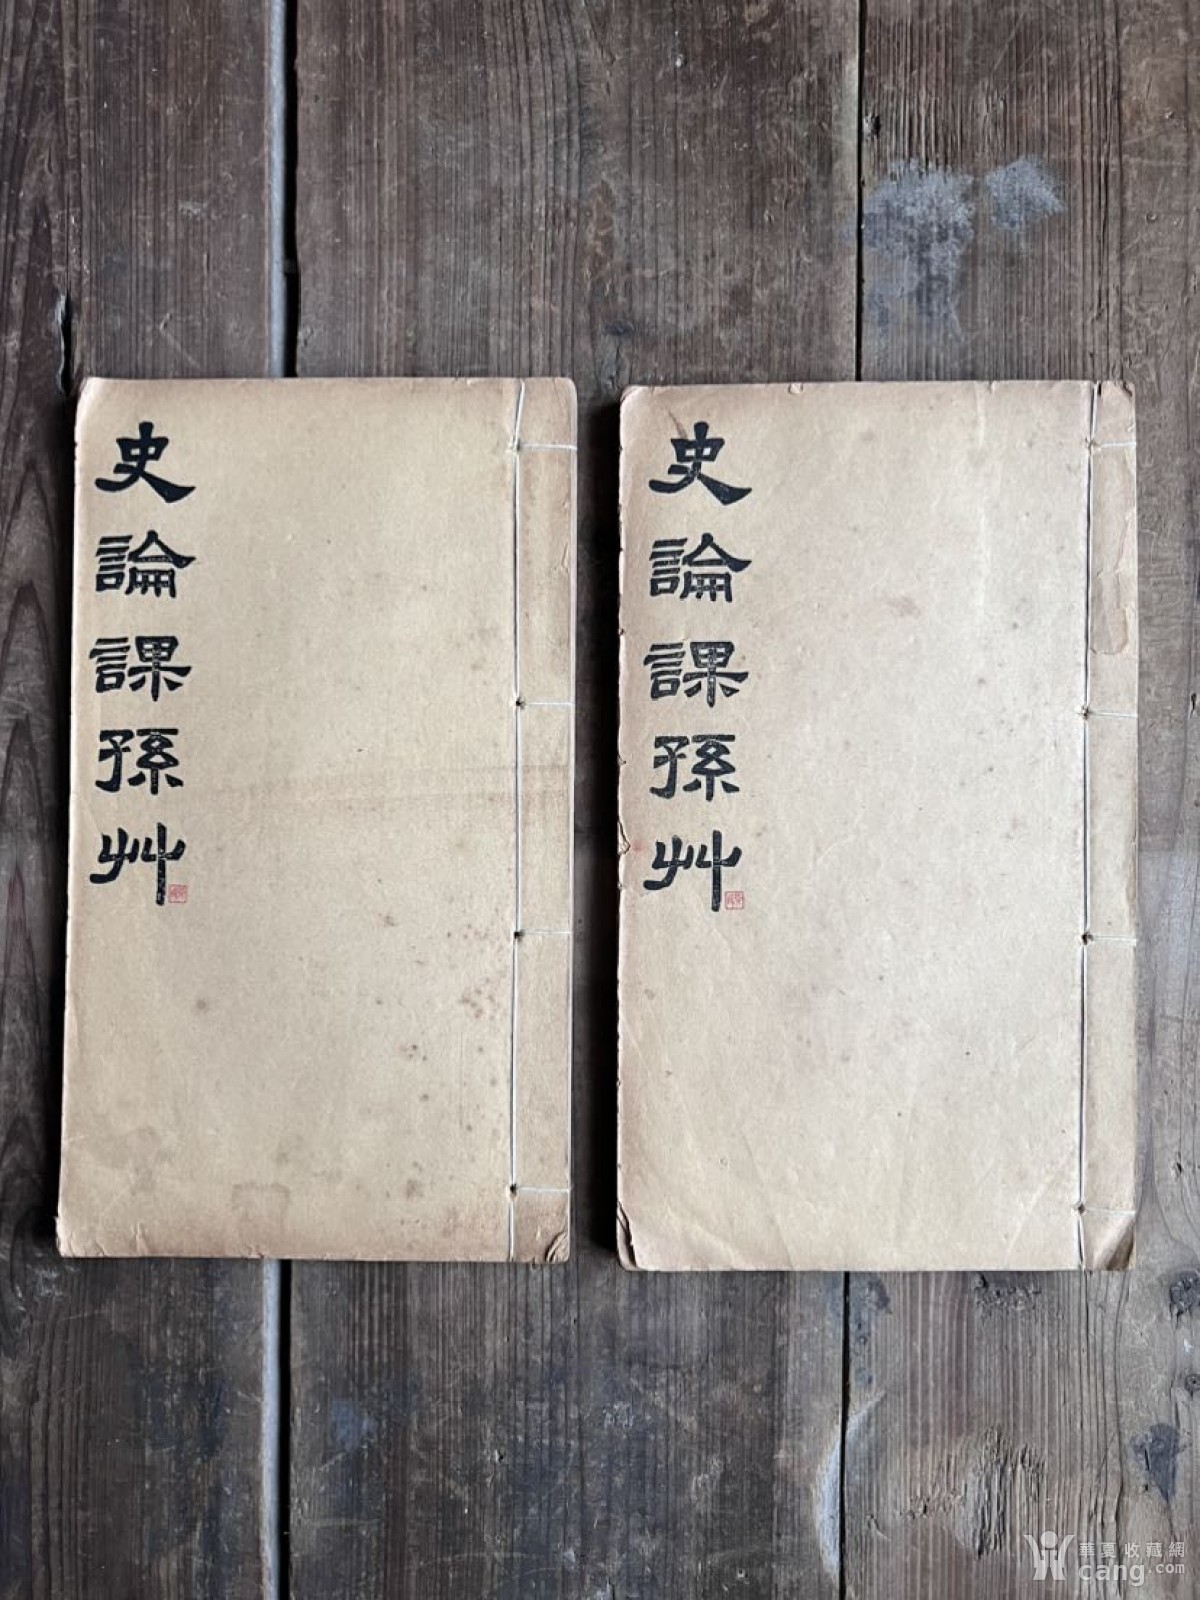 史論課孫艸
史論課孫艸
華夏收藏網
cang.com